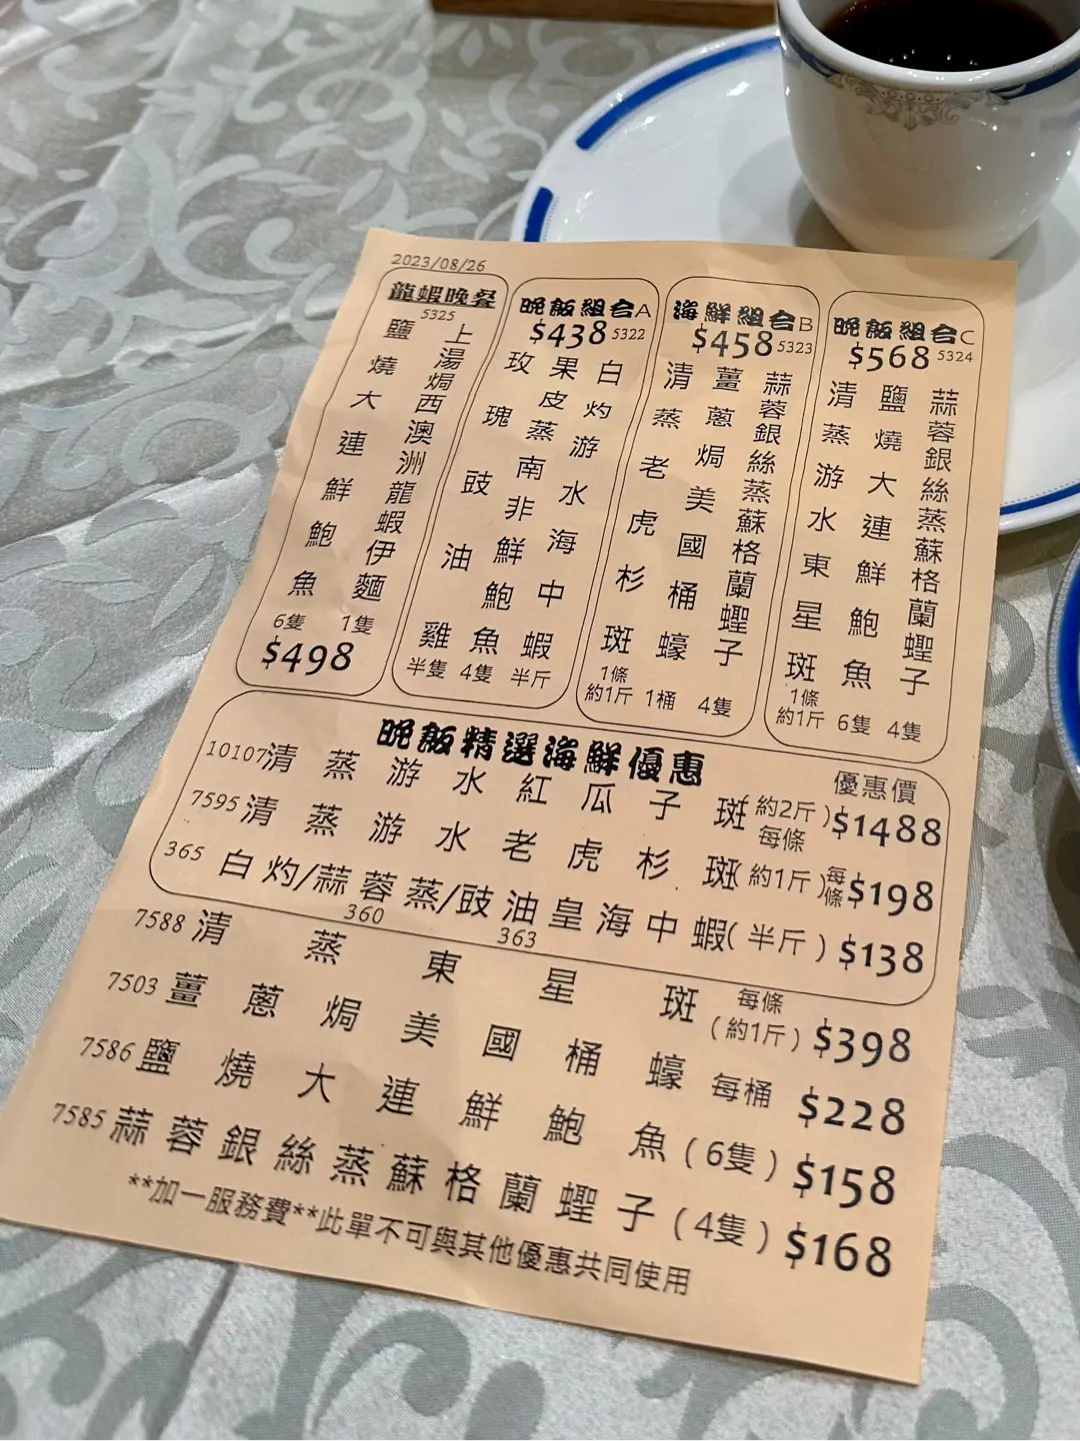 2023/08/26
龍蝦晚餐
5325
上湯焗西澳洲龍蝦伊麵
1隻
鹽燒大連鮮鮑魚
6隻
$498
晚飯組合A
$438 5322
白灼游水海中蝦
半斤
果皮蒸南非鮮鮑魚
4隻
玫瑰豉油雞
半隻
海鮮組合B
$458 5323
蒜蓉銀絲蒸蘇格蘭蟶子
4隻
薑蔥焗美國桶蠔
1桶
清蒸老虎杉斑
1條
約1斤
晚飯組合C
$568 5324
蒜蓉銀絲蒸蘇格蘭蟶子
4隻
鹽燒大連鮮鮑魚
6隻
清蒸游水東星斑
1條
約1斤
晚飯精選海鮮優惠
優惠價
10107 清蒸游水紅瓜子斑(約2斤)每條 $1488
7595 清蒸游水老虎杉斑(約1斤)每條 $198
365 白灼/蒜蓉蒸/豉油皇海中蝦(半斤) $138
360 363
7588 清蒸東星斑 每條(約1斤) $398
7503 薑蔥焗美國桶蠔 每桶 $228
7586 鹽燒大連鮮鮑魚(6隻) $158
7585 蒜蓉銀絲蒸蘇格蘭蟶子(4隻) $168
**加一服務費**此單不可與其他優惠共同使用